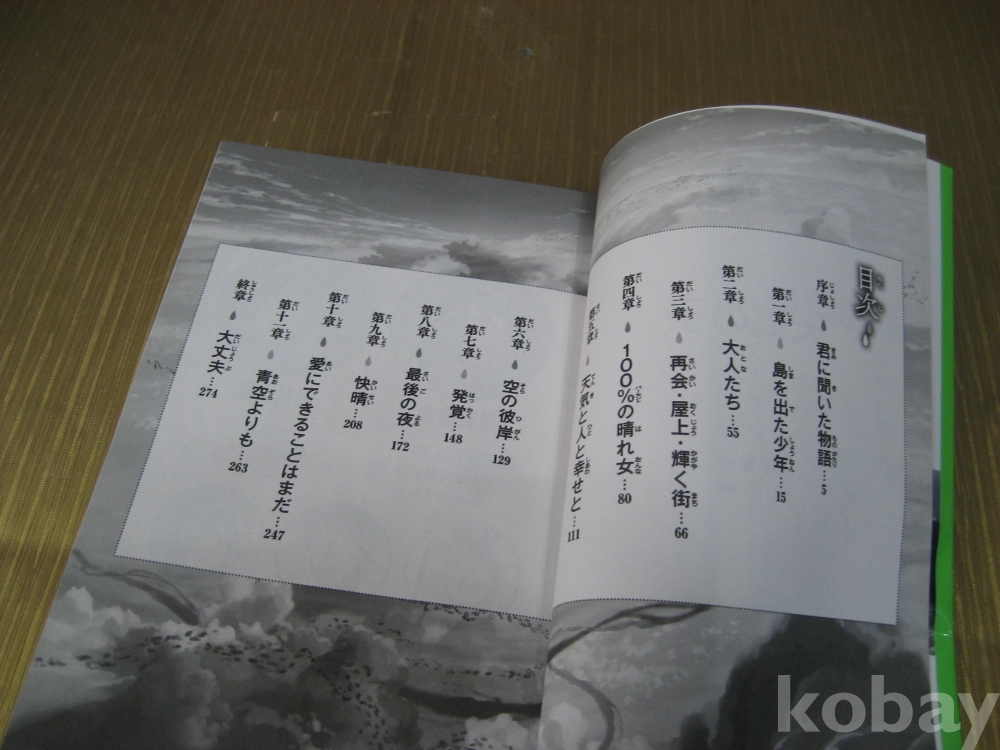 目次
序章 君に聞いた物語…5
第一章 島を出た少年…15
第二章 大人たち…55
第三章 再会・屋上・輝く街…66
第四章 100%の晴れ女…80
第五章 天気と人と幸せと…111
第六章 空の彼岸…129
第七章 発覚…148
第八章 最後の夜…172
第九章 快晴…208
第十章 愛にできることはまだ…247
第十一章 青空よりも…263
終章 大丈夫…274
kobay